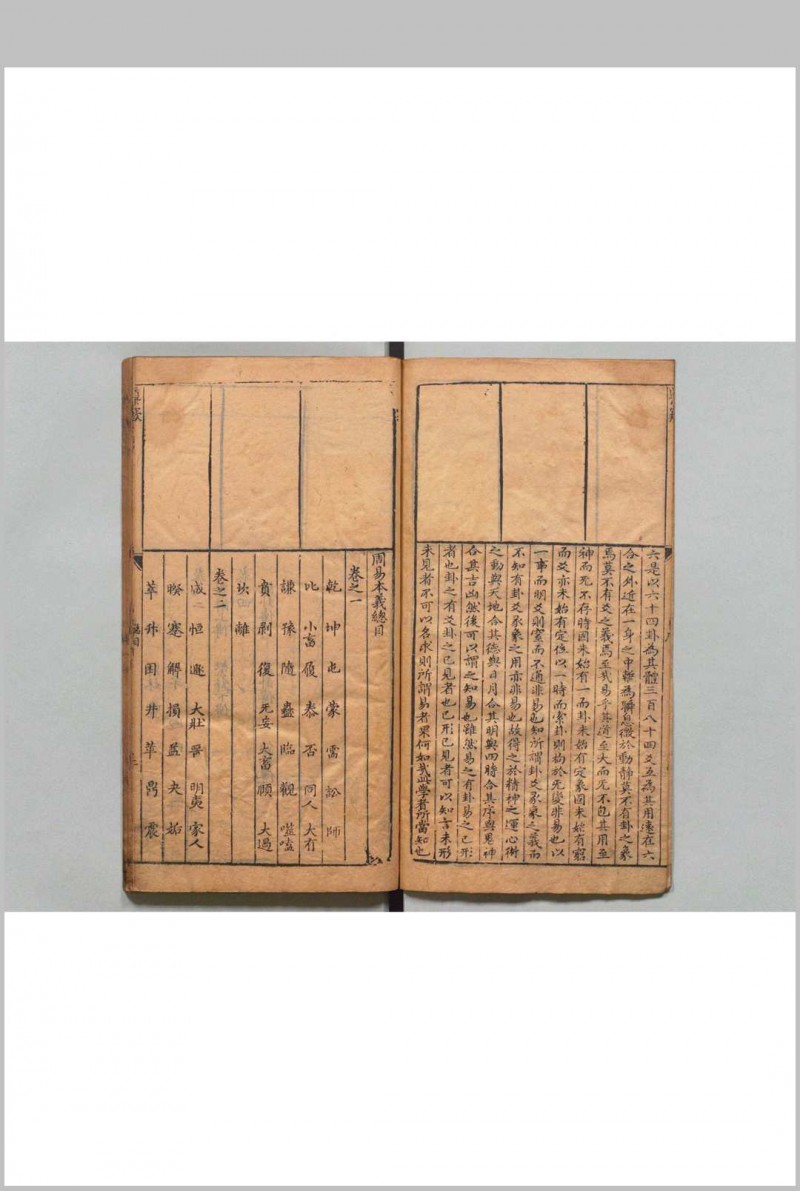 六是以六十四卦為其體三百八十四爻互為其用遠在六
合之外近在一身之中暫為瞬息微於動靜莫不有卦之象
焉莫不有爻之義焉至哉易乎其道至大而无不包其用至
神而无不存時固未始有一而卦未始有定象固未始有窮
而爻亦未始有定位以一時而索卦則拘於无變非易也以
一事而明爻則窒而不通非易也知所謂卦爻彖象之義而
不知有卦爻彖象之用亦非易也故得之於精神之運心術
之動與天地合其德與日月合其明與四時合其序與鬼神
合其吉凶然後可以謂之知易也雖然易之有卦易之已形
者也卦之有爻卦之已見者也已形已見者可以知言未形
未見者不可以名求則所謂易者果何如哉此學者所當知也
周易本義總目
卷之一
乾 坤 屯 蒙 需 訟 師
比 小畜 履 泰 否 同人 大有
謙 豫 隨 蠱 臨 觀 噬嗑
賁 剝 復 无妄 大畜 頤 大過
坎 離
卷之二
咸 恒 遯 大壯 晉 明夷 家人
睽 蹇 解 損 益 夬 姤
萃 升 困 井 革 鼎 震
總目